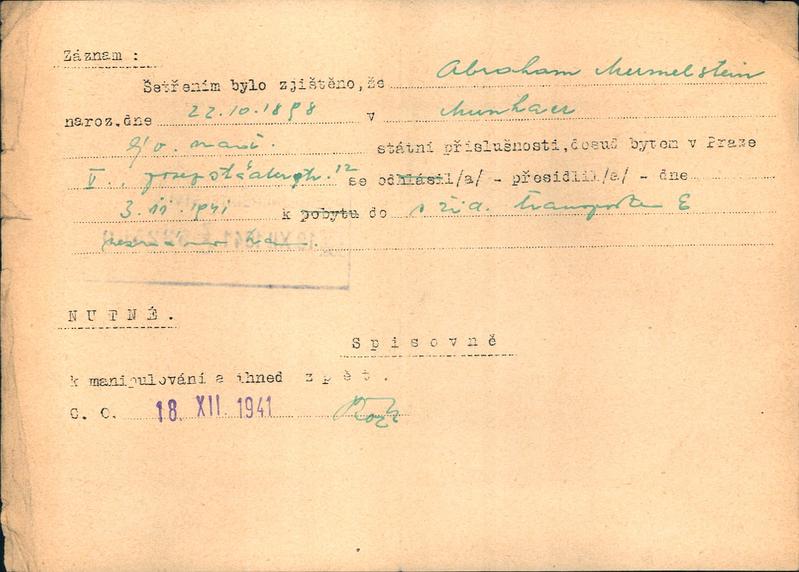 Záznam :
Šetřením bylo zjištěno, že Abraham Mermelstein
naroz. dne 22.10.1898 v Munkacs
státní příslušnosti, dosud bytem v Praze
V., 12 se odhlásil/a/ - přesídlil/a/ - dne
3. 11. 1941 k pobytu do s žid. transportem E
NUTNÉ.
Spisovně
k manipulování a ihned zpět.
C. O. 18. XII. 1941